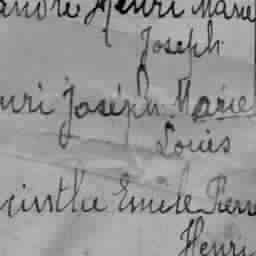 andre Henri Marie
Joseph
nri Joseph Marie
Louis
cinthe Emile Pierre
Henri